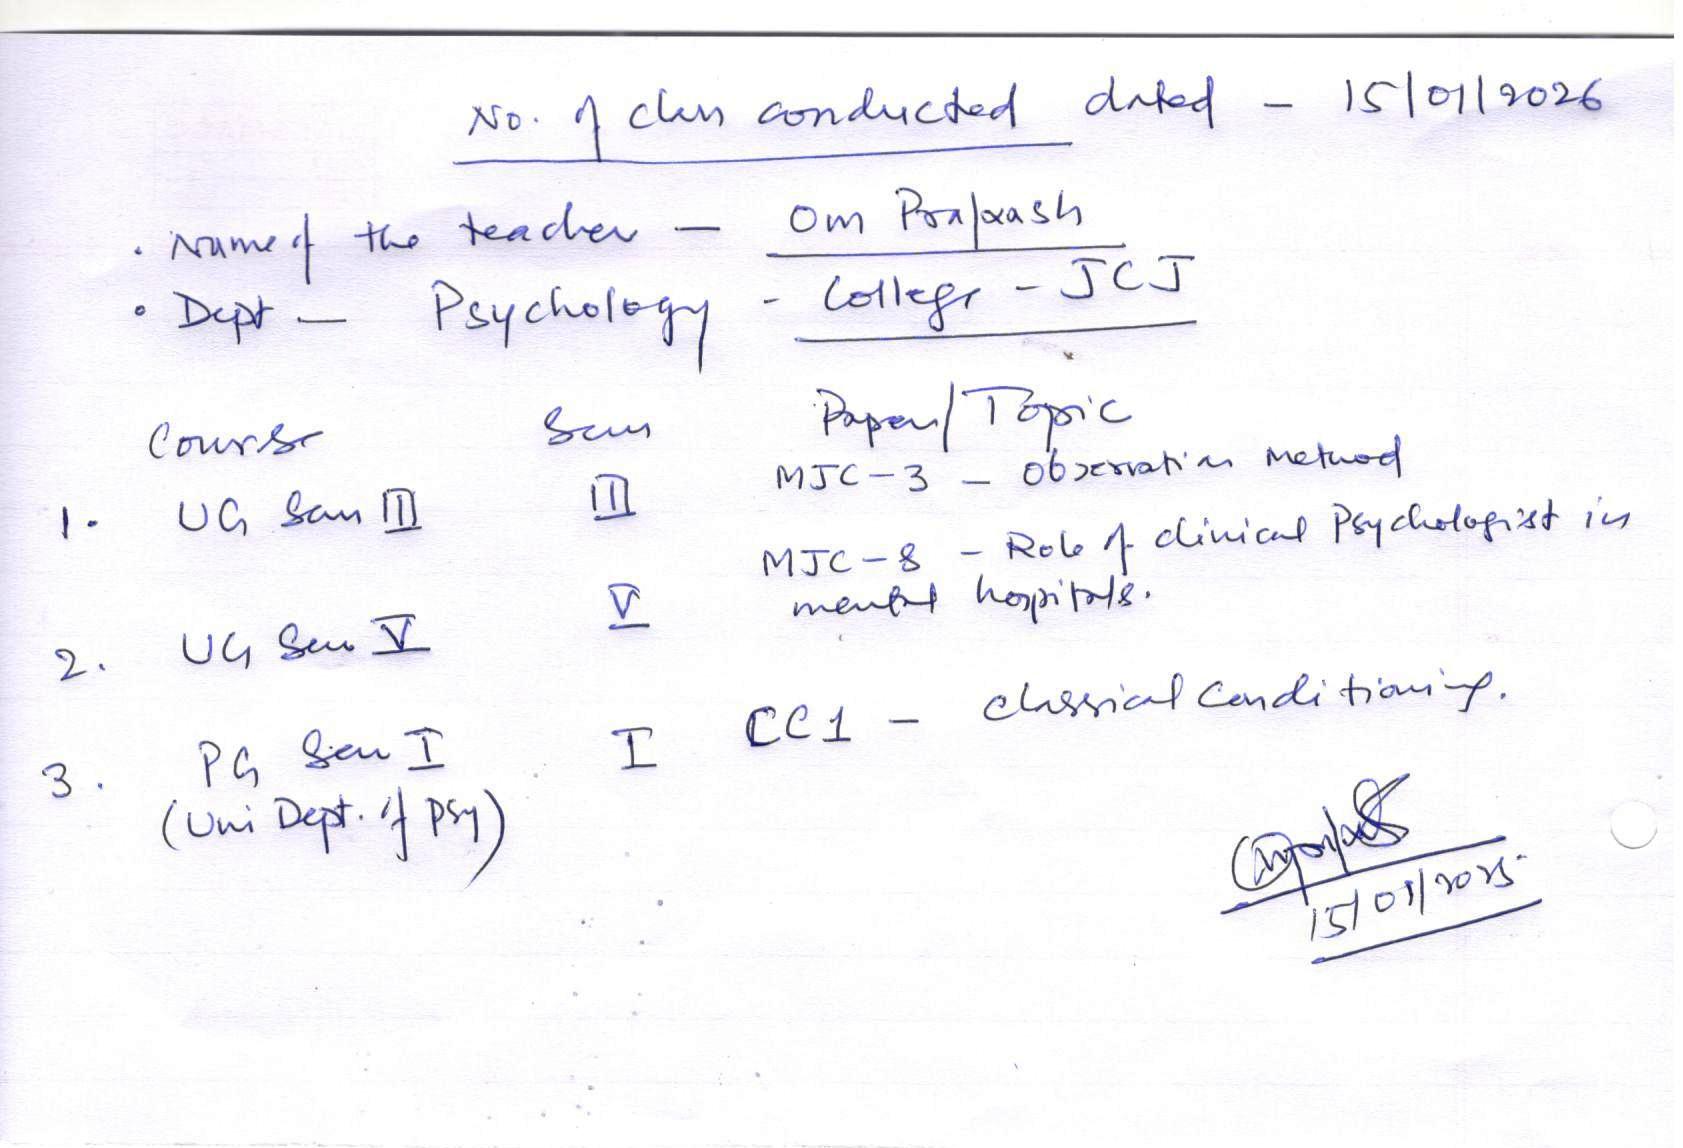 No. of class conducted dated - 15/01/2026
. Name of the teacher - Om Prakash
• Dept - Psychology - College - JCJ
Course Sem Paper/Topic
1. UG Sem III III MJC-3 - Observation Method
2. UG Sem V V MJC-8 - Role of clinical Psychologist in
mental hospitals.
3. PG Sem I I CC1 - classical conditioning.
(Uni Dept. of Psy)
15/01/2025